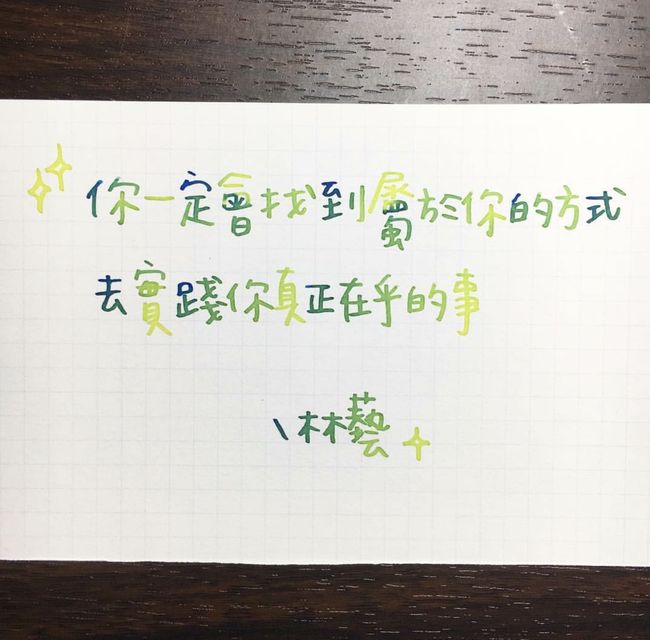 你一定會找到屬於你的方式
去實踐你真正在乎的事
\林藝